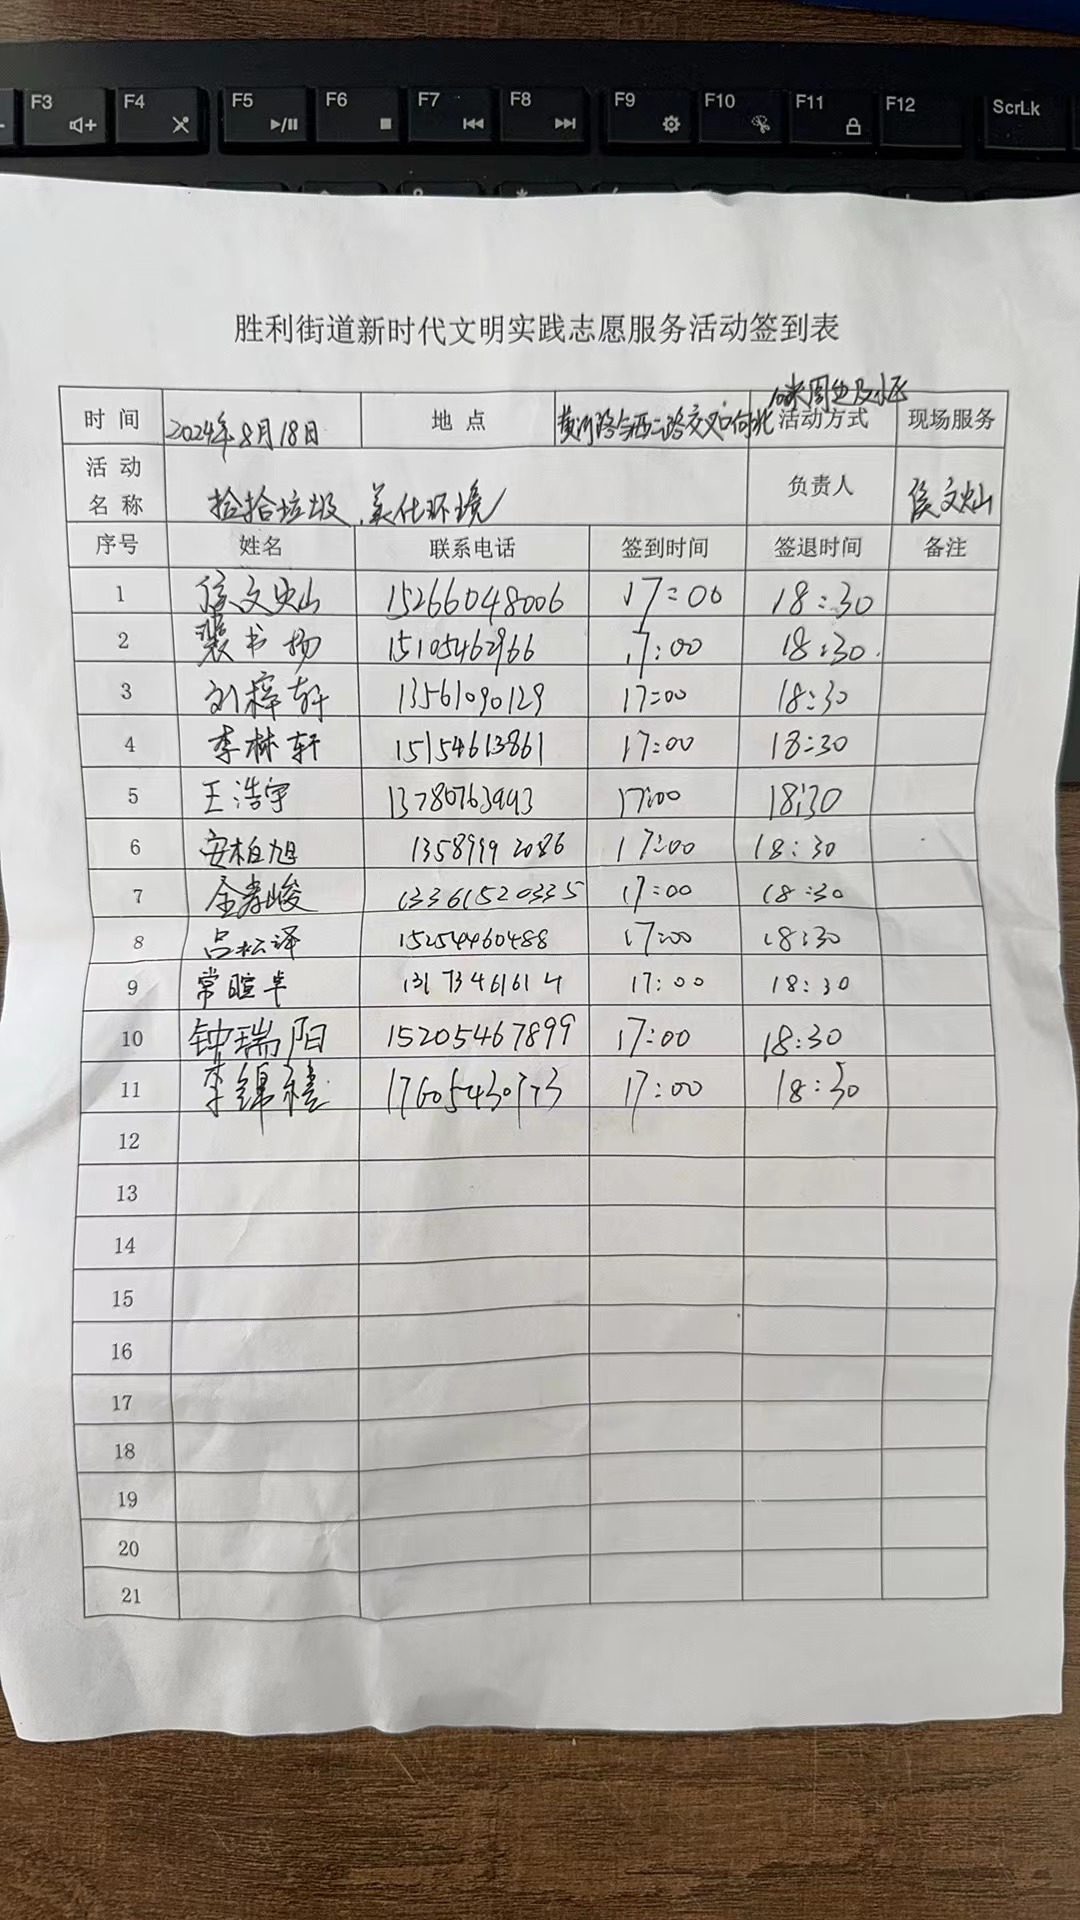 F3 F4 F5 F6 F7 F8 F9 F10 F11 F12 ScrLk
胜利街道新时代文明实践志愿服务活动签到表
时间 2024年8月18日 地点 黄河路与西二路交叉口向北 活动方式 现场服务
活动名称 捡拾垃圾,美化环境 负责人 侯文灿
序号 姓名 联系电话 签到时间 签退时间 备注
1 侯文灿 15266048006 17:00 18:30
2 裴书扬 15105462966 17:00 18:30
3 刘梓轩 13561090129 17:00 18:30
4 李林轩 15154613861 17:00 18:30
5 王浩宇 13780763993 17:00 18:30
6 安柏旭 13589992086 17:00 18:30
7 13361520335 17:00 18:30
8 吕松泽 15254460488 17:00 18:30
9 常暄卓 13173461614 17:00 18:30
10 钟瑞阳 15205467899 17:00 18:30
11 李锦禧 17605430773 17:00 18:30
12
13
14
15
16
17
18
19
20
21